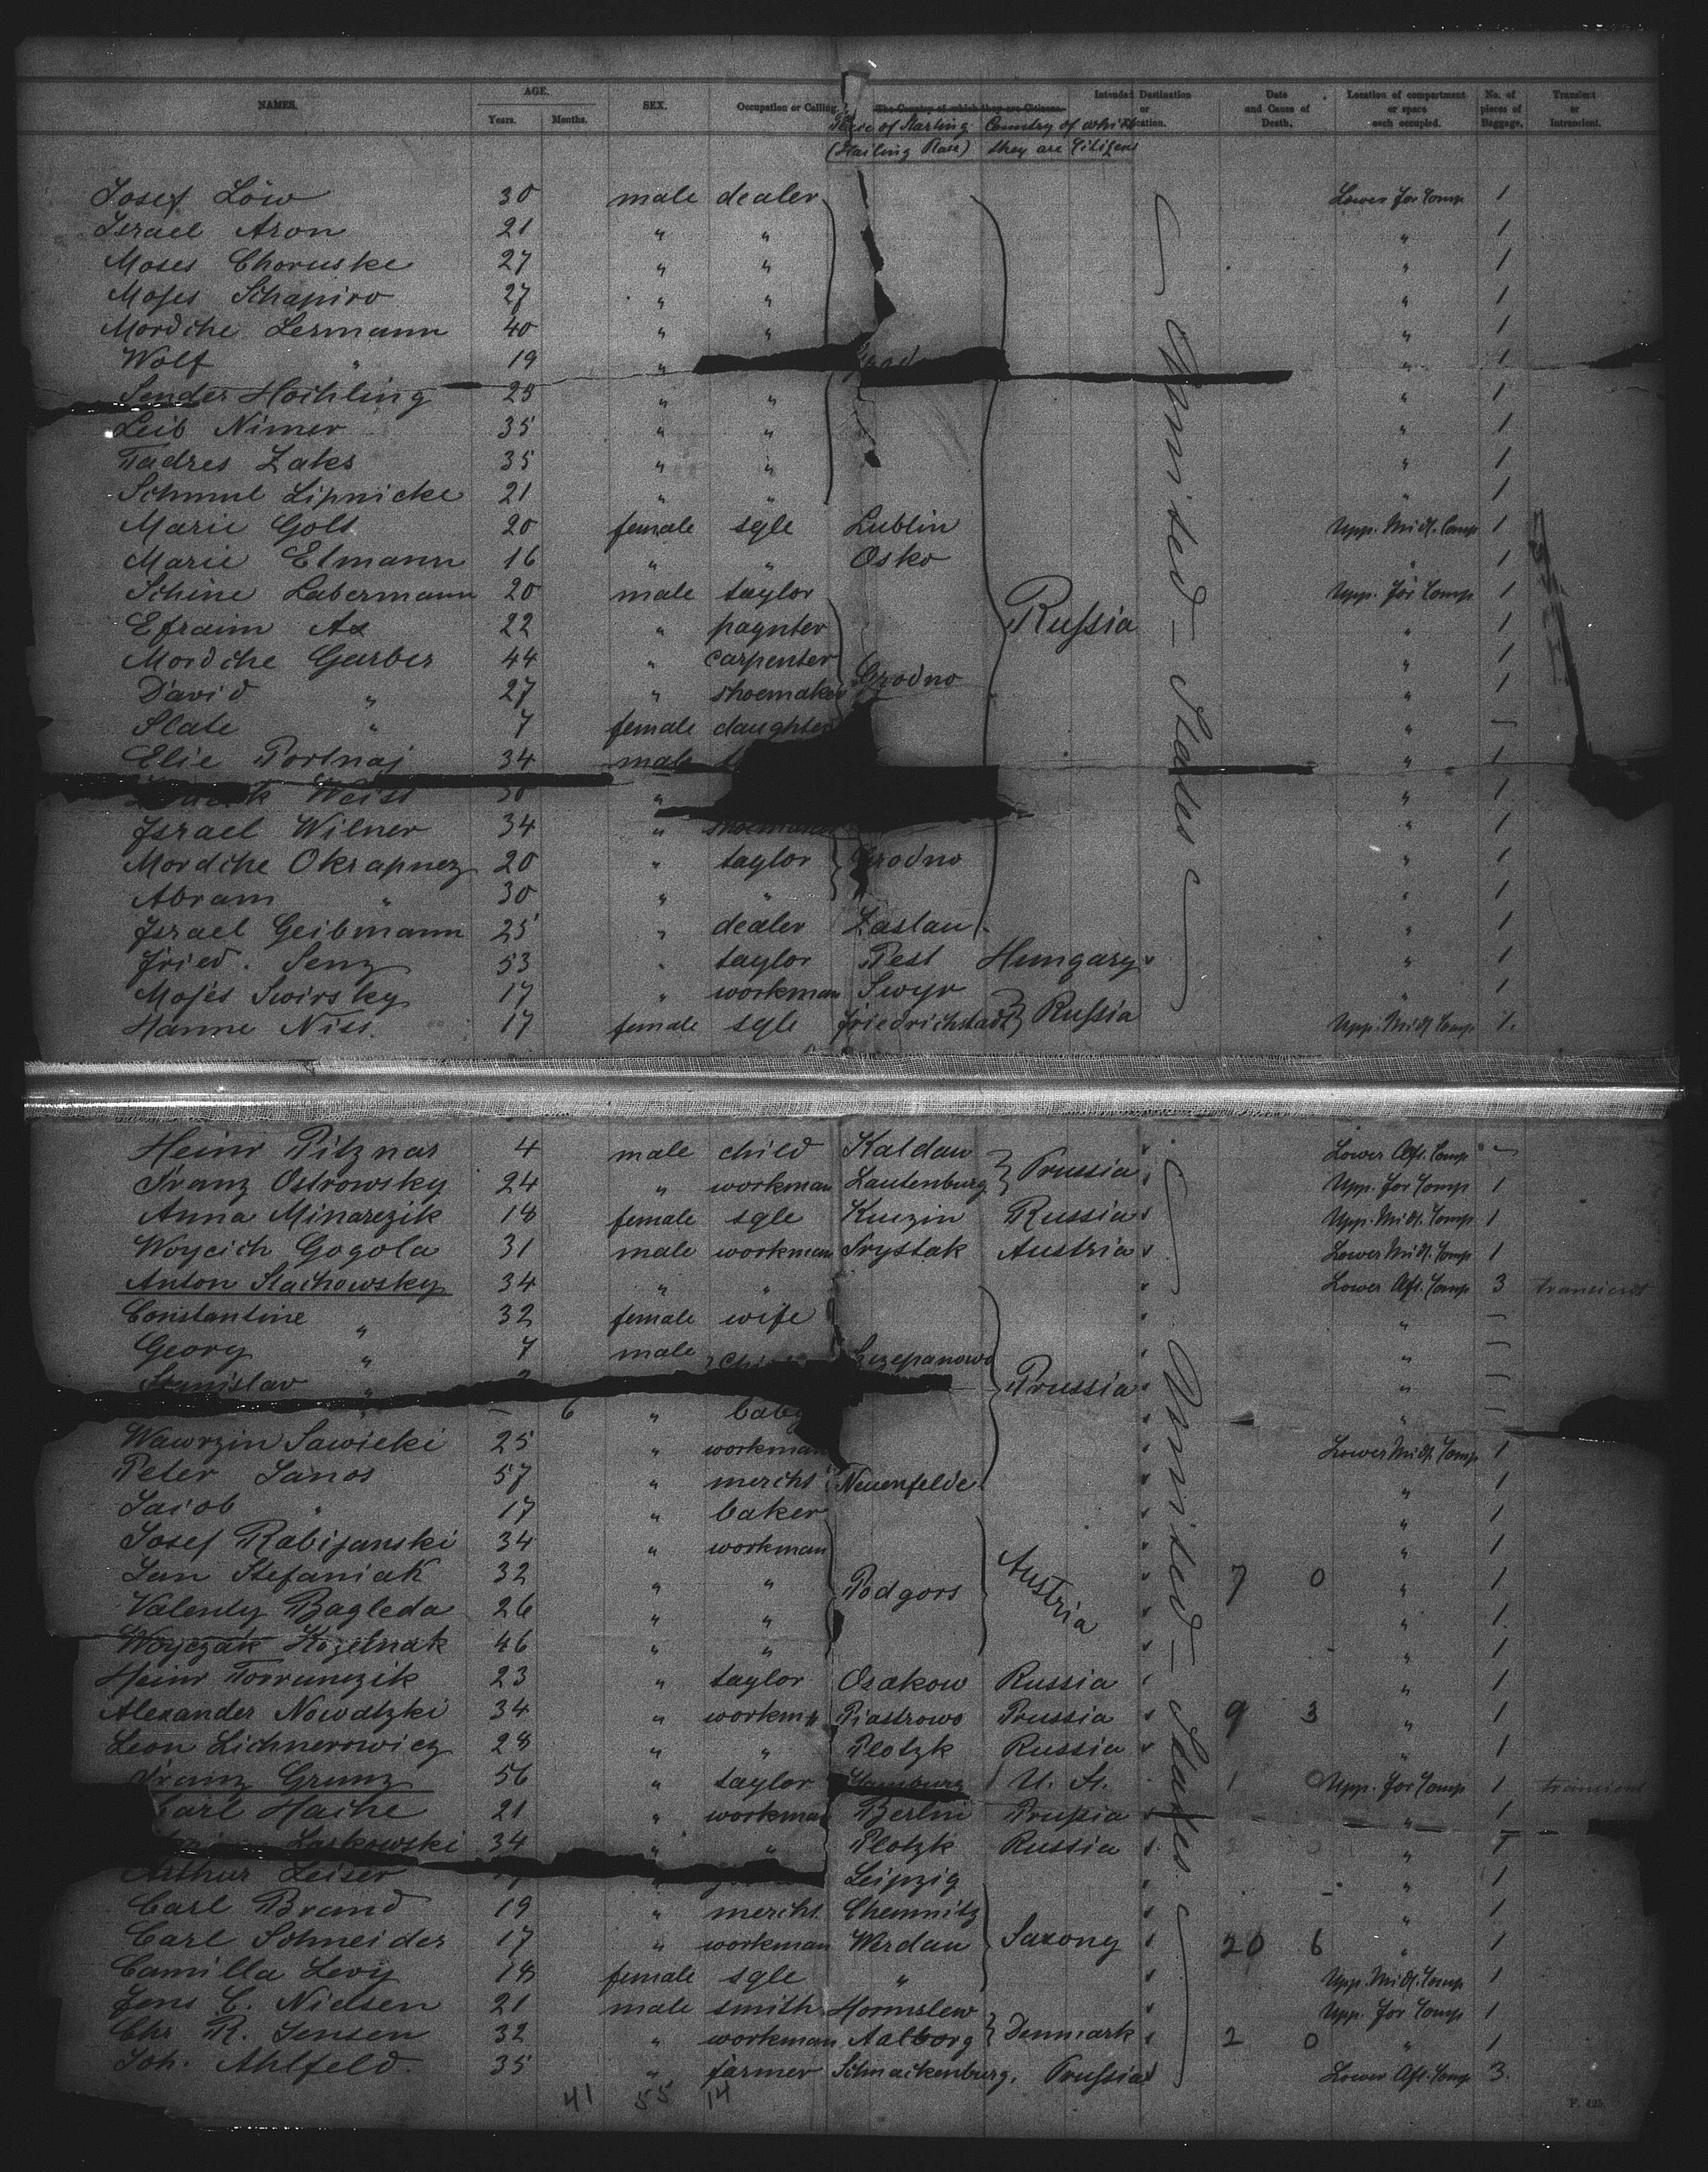 NAMES. AGE. Years. Months. SEX. Occupation or Calling. The Country of which they are Citizens. Intended Destination or Location. Date and Cause of Death. Location of compartment or space each occupied. No. of pieces of Baggage. Transient or Intransient.
Place of Starting Country of which
(Hailing Place) they are Citizens
Josef Löw 30 male dealer Lower For Comp 1
Israel Aron 21 " " " 1
Moses Choruske 27 " " " 1
Moses Schapiro 27 " " " 1
Mordche Lermann 40 " " " 1
Wolf " 19 " " 1
Sender Hochling 25 " " " 1
Leib Nimer 35 " " " 1
Tadres Zaks 35 " " " 1
Schmul Lipnicke 21 " " " 1
Marie Golt 20 female sgle Lublin Upp. Midl. Comp 1
Marie Elmann 16 " " Osko " 1
Schine Labermann 20 male taylor Russia Upp. For Comp 1
Efraim As 22 " paynter " 1
Mordche Garber 44 " carpenter " 1
David " 27 " shoemaker Grodno " 1
Slate " 7 female daughter " —
Elie Portnaj 34 male " 1
Weiss 30 " " 1
Israel Wilner 34 " shoemaker " 1
Mordche Okrapnez 20 " taylor Grodno " 1
Abram " 30 " " " 1
Israel Geibmann 25 " dealer Zaslau " 1
Fried. Senz 53 " taylor Pest Hungary " 1
Moses Swirsky 17 " workman Swyr " 1
Hanne Niss. 17 female sgle Friedrichstadt Russia Upp. Midl Comp 1.
United – States
Heinr Pitznar 4 male child Kaldau Lower Aft. Comp —
Franz Ostrowsky 24 " workman Lautenburg Prussia Upp. For Comp 1
Anna Minarezik 18 female sgle Kuizin Russia Upp. Midl. Comp 1
Woycich Gogola 31 male workman Frystak Austria Lower Midl. Comp 1
Anton Stachowsky 34 " " Lower Aft. Comp 3 transient
Constantine " 32 female wife " —
Georg " 7 male Szczepanowo " —
Stanislav " Prussia " —
" — 6 " baby " —
Wawrzin Sawicki 25 " workman Lower Midl. Comp 1
Peter Janos 57 " mercht Neuenfelde " 1
Jacob " 17 " baker " 1
Josef Rabijanski 34 " workman " 1
Jan Stefaniak 32 " " Podgors Austria 7 0 " 1
Valenty Bagleda 26 " " " 1.
Woyczak Kozelnak 46 " " " 1
Heinr Torrunczik 23 " taylor Osakow Russia " 1
Alexander Nowatzki 34 " workm " Piastrowo Prussia 9 3 " 1
Leon Lichnerowicz 28 " " Plotzk Russia " 1
Franz Grunz 56 " taylor Hamburg U. St. 1 0 Upp. For Comp 1 transient
Carl Hache 21 " workman Berlin Prussia " 1
Laskowski 34 " " Plotzk Russia " 1
Arthur Leiser " Leipzig " 1
Carl Brand 19 " mercht. Chemnitz " 1
Carl Schneider 17 " workman Werdau Saxony 20 6 " 1
Camilla Levy 18 female sgle " Upp. Midl. Comp 1
Jens C. Nielsen 21 male smith Hormslew Upp. For Comp 1
Chr R. Jensen 32 " workman Aalborg Denmark 2 0 " 1
Joh. Ahlfeld. 35 " farmer Schnackenburg. Prussia Lower Aft. Comp 3.
United – States.
41 55 14